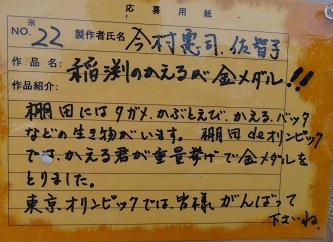 応募用紙
※
NO. 22 製作者氏名 今村憲司、佐智子
作品名: 稲渕のかえるが金メダル!!
作品紹介:
棚田にはタガメ、かぶとえび、かえる、バッタ
などの生き物がいます。棚田deオリンピック
では、かえる君が重量挙げで金メダルを
とりました。
東京オリンピックでは、皆様、がんばって
下さいね。